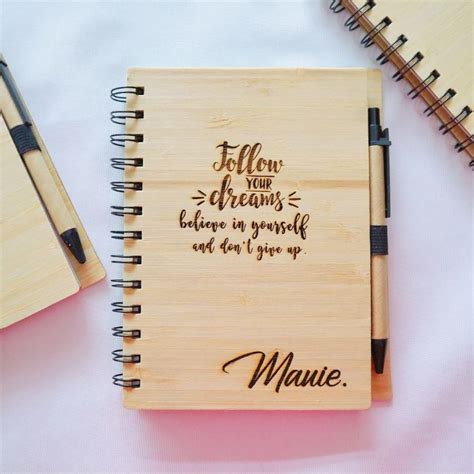 Follow
YOUR
dreams
believe in yourself
and don't give up.
Manie.